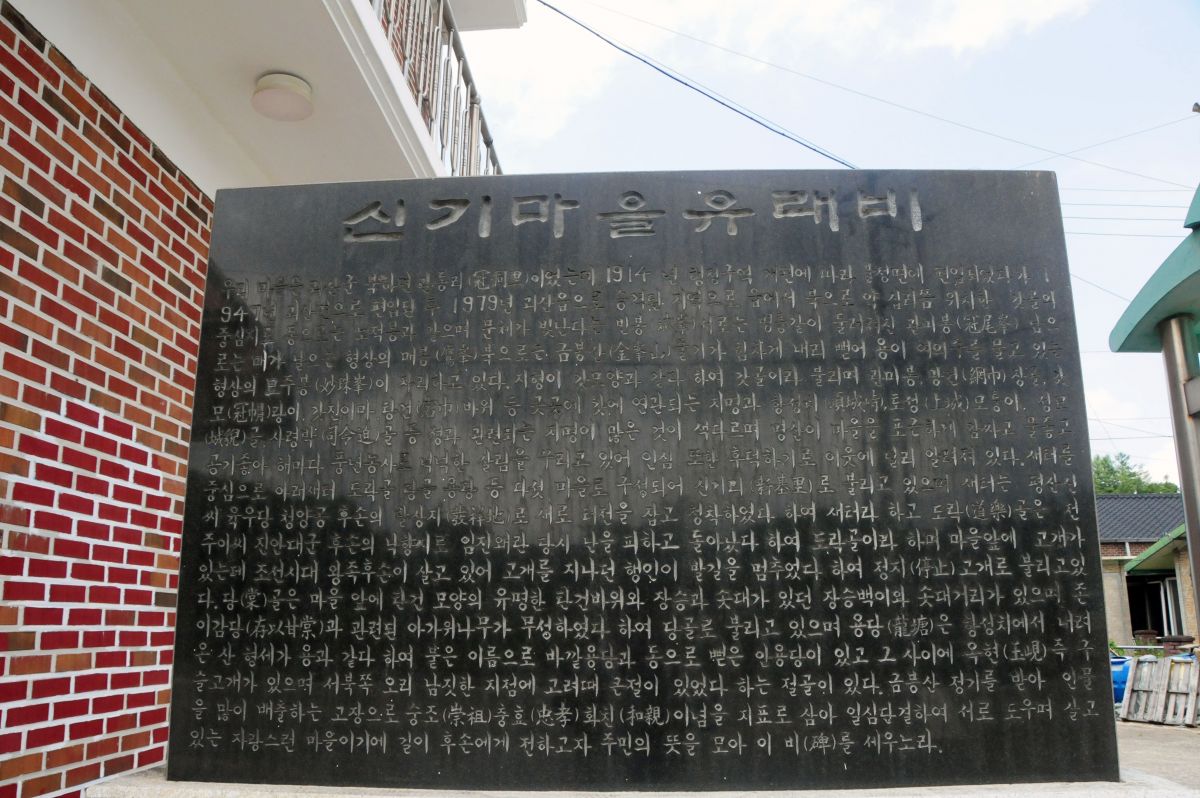 신기마을유래비
우리 마을은 괴산군 북하면 이었는데 1914년 행정구역 개편에 따라 불정면에 편입되었다가 1
947년 으로 편입된 후 1979년 괴산읍으로 승격된 지역으로 읍에서 북으로 약 위치한 갓골이
중심 동으로는 같으며 문체가 빛난다는 문봉 서로는 병풍같이 둘러쳐진 갈미봉 남으
로는 매가 날으는 형상의 매봉 북으로는 금봉산 줄기가 힘차게 내리 뻗어 용이 여의주를 물고 있는
형상의 자리하고 있다. 지형이 갓모양과 같다 하여 갓골이라 불리며 갈미봉, 망건(網巾)장골, 갓
모(冠帽) 바위 등 곳곳에 갓에 연관되는 지명과 토성(土城)모퉁이, 성모
골 등 성과 관련되는 지명이 많은 것이 색다르며 명산이 마을을 포근하게 감싸고 물좋고
공기좋아 해마다 풍년농사로 넉넉한 살림을 꾸리고 있어 인심 또한 후덕하기로 이웃에 널리 알려져 있다. 새터를
중심으로 아래새터 도락골 당골 용당 등 다섯 마을로 구성되어 신기리(新基里)로 불리고 있으며 새터는 평산신
씨 육우당 청양공 후손의 로 새로 터전을 잡고 정착하였다 하여 새터라 하고 도락(道樂)골은 전
주이씨 진안대군 후손의 낙향지로 임진왜란 당시 난을 피하고 돌아났다 하여 도락골이라 하며 마을앞에 고개가
있는데 조선시대 왕족후손이 살고 있어 고개를 지나던 행인이 발길을 멈추었다 하여 정지(停止)고개로 불리고 있
다. 당(棠)골은 마을 앞에 탕건 모양의 유명한 탕건바위와 장승과 솟대가 있던 장승백이와 솟대거리가 있으며 존
이감당(存以甘棠)과 관련된 아가위나무가 무성하였다 하여 당골로 불리고 있으며 용당(龍塘)은 항심치에서 내려
온 산 형세가 용과 같다 하여 붙은 이름으로 바깥용당과 동으로 뻗은 안용당이 있고 그 사이에 옥현(玉峴) 즉 구
슬고개가 있으며 서북쪽 오리 남짓한 지점에 고려때 큰절이 있었다 하는 절골이 있다. 금봉산 정기를 받아 인물
을 많이 배출하는 고장으로 숭조(崇祖)충효(忠孝)화친(和親)이념을 지표로 삼아 일심단결하여 서로 도우며 살고
있는 자랑스런 마을이기에 길이 후손에게 전하고자 주민의 뜻을 모아 이 비(碑)를 세우노라.